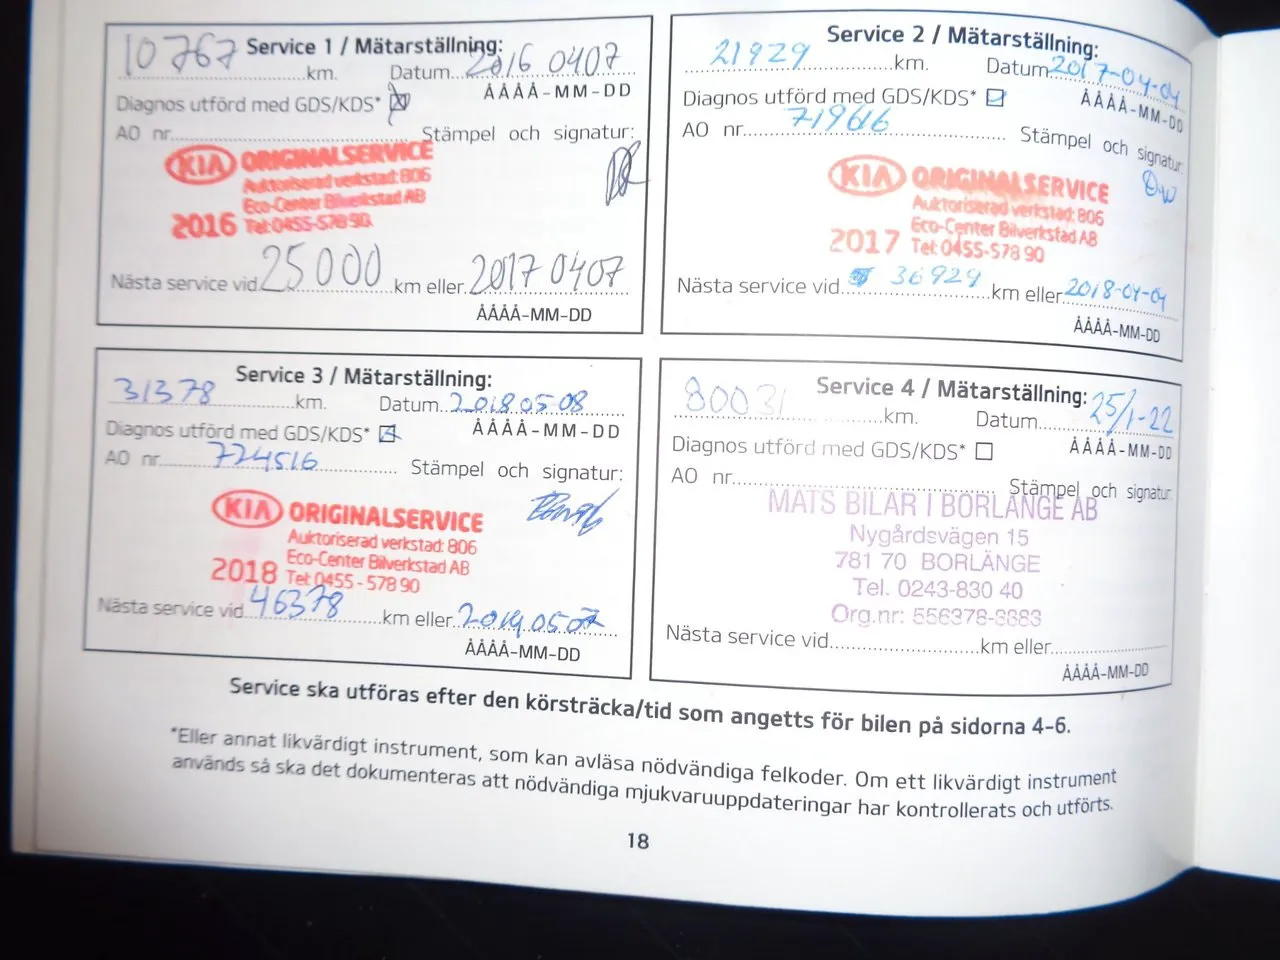 10767 Service 1 / Mätarställning:
km. Datum 2016 0407
Diagnos utförd med GDS/KDS* ÅÅÅÅ-MM-DD
AO nr. Stämpel och signatur:
KIA ORIGINALSERVICE
Auktoriserad verkstad: 806
Eco-Center Bilverkstad AB
2016 Tel: 0455-578 90
Nästa service vid 25000 km eller 2017 0407
ÅÅÅÅ-MM-DD
Service 2 / Mätarställning:
21929 km. Datum 2017-04-04
Diagnos utförd med GDS/KDS* ÅÅÅÅ-MM-DD
AO nr. 719616 Stämpel och signatur:
KIA ORIGINALSERVICE
Auktoriserad verkstad: 806
Eco-Center Bilverkstad AB
2017 Tel: 0455-578 90
Nästa service vid 36929 km eller 2018-04-04
ÅÅÅÅ-MM-DD
Service 3 / Mätarställning:
31378 km. Datum 2018 05 08
Diagnos utförd med GDS/KDS* ÅÅÅÅ-MM-DD
AO nr. 724516 Stämpel och signatur:
KIA ORIGINALSERVICE
Auktoriserad verkstad: 806
Eco-Center Bilverkstad AB
2018 Tel: 0455-578 90
Nästa service vid 46378 km eller 2019 05 07
ÅÅÅÅ-MM-DD
Service 4 / Mätarställning:
80031 km. Datum 25/1-22
Diagnos utförd med GDS/KDS* ÅÅÅÅ-MM-DD
AO nr. Stämpel och signatur
MATS BILAR I BORLÄNGE AB
Nygårdsvägen 15
781 70 BORLÄNGE
Tel. 0243-830 40
Org.nr: 556378-8883
Nästa service vid km eller
ÅÅÅÅ-MM-DD
Service ska utföras efter den körsträcka/tid som angetts för bilen på sidorna 4-6.
*Eller annat likvärdigt instrument, som kan avläsa nödvändiga felkoder. Om ett likvärdigt instrument
används så ska det dokumenteras att nödvändiga mjukvaruuppdateringar har kontrollerats och utförts.
18